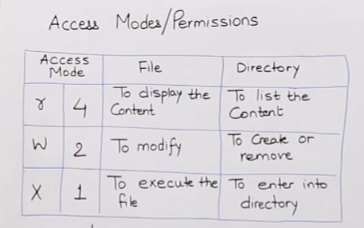 Access Modes/Permissions
Access Mode File Directory
r 4 To display the Content To list the Content
W 2 To modify To Create or remove
X 1 To execute the file To enter into directory